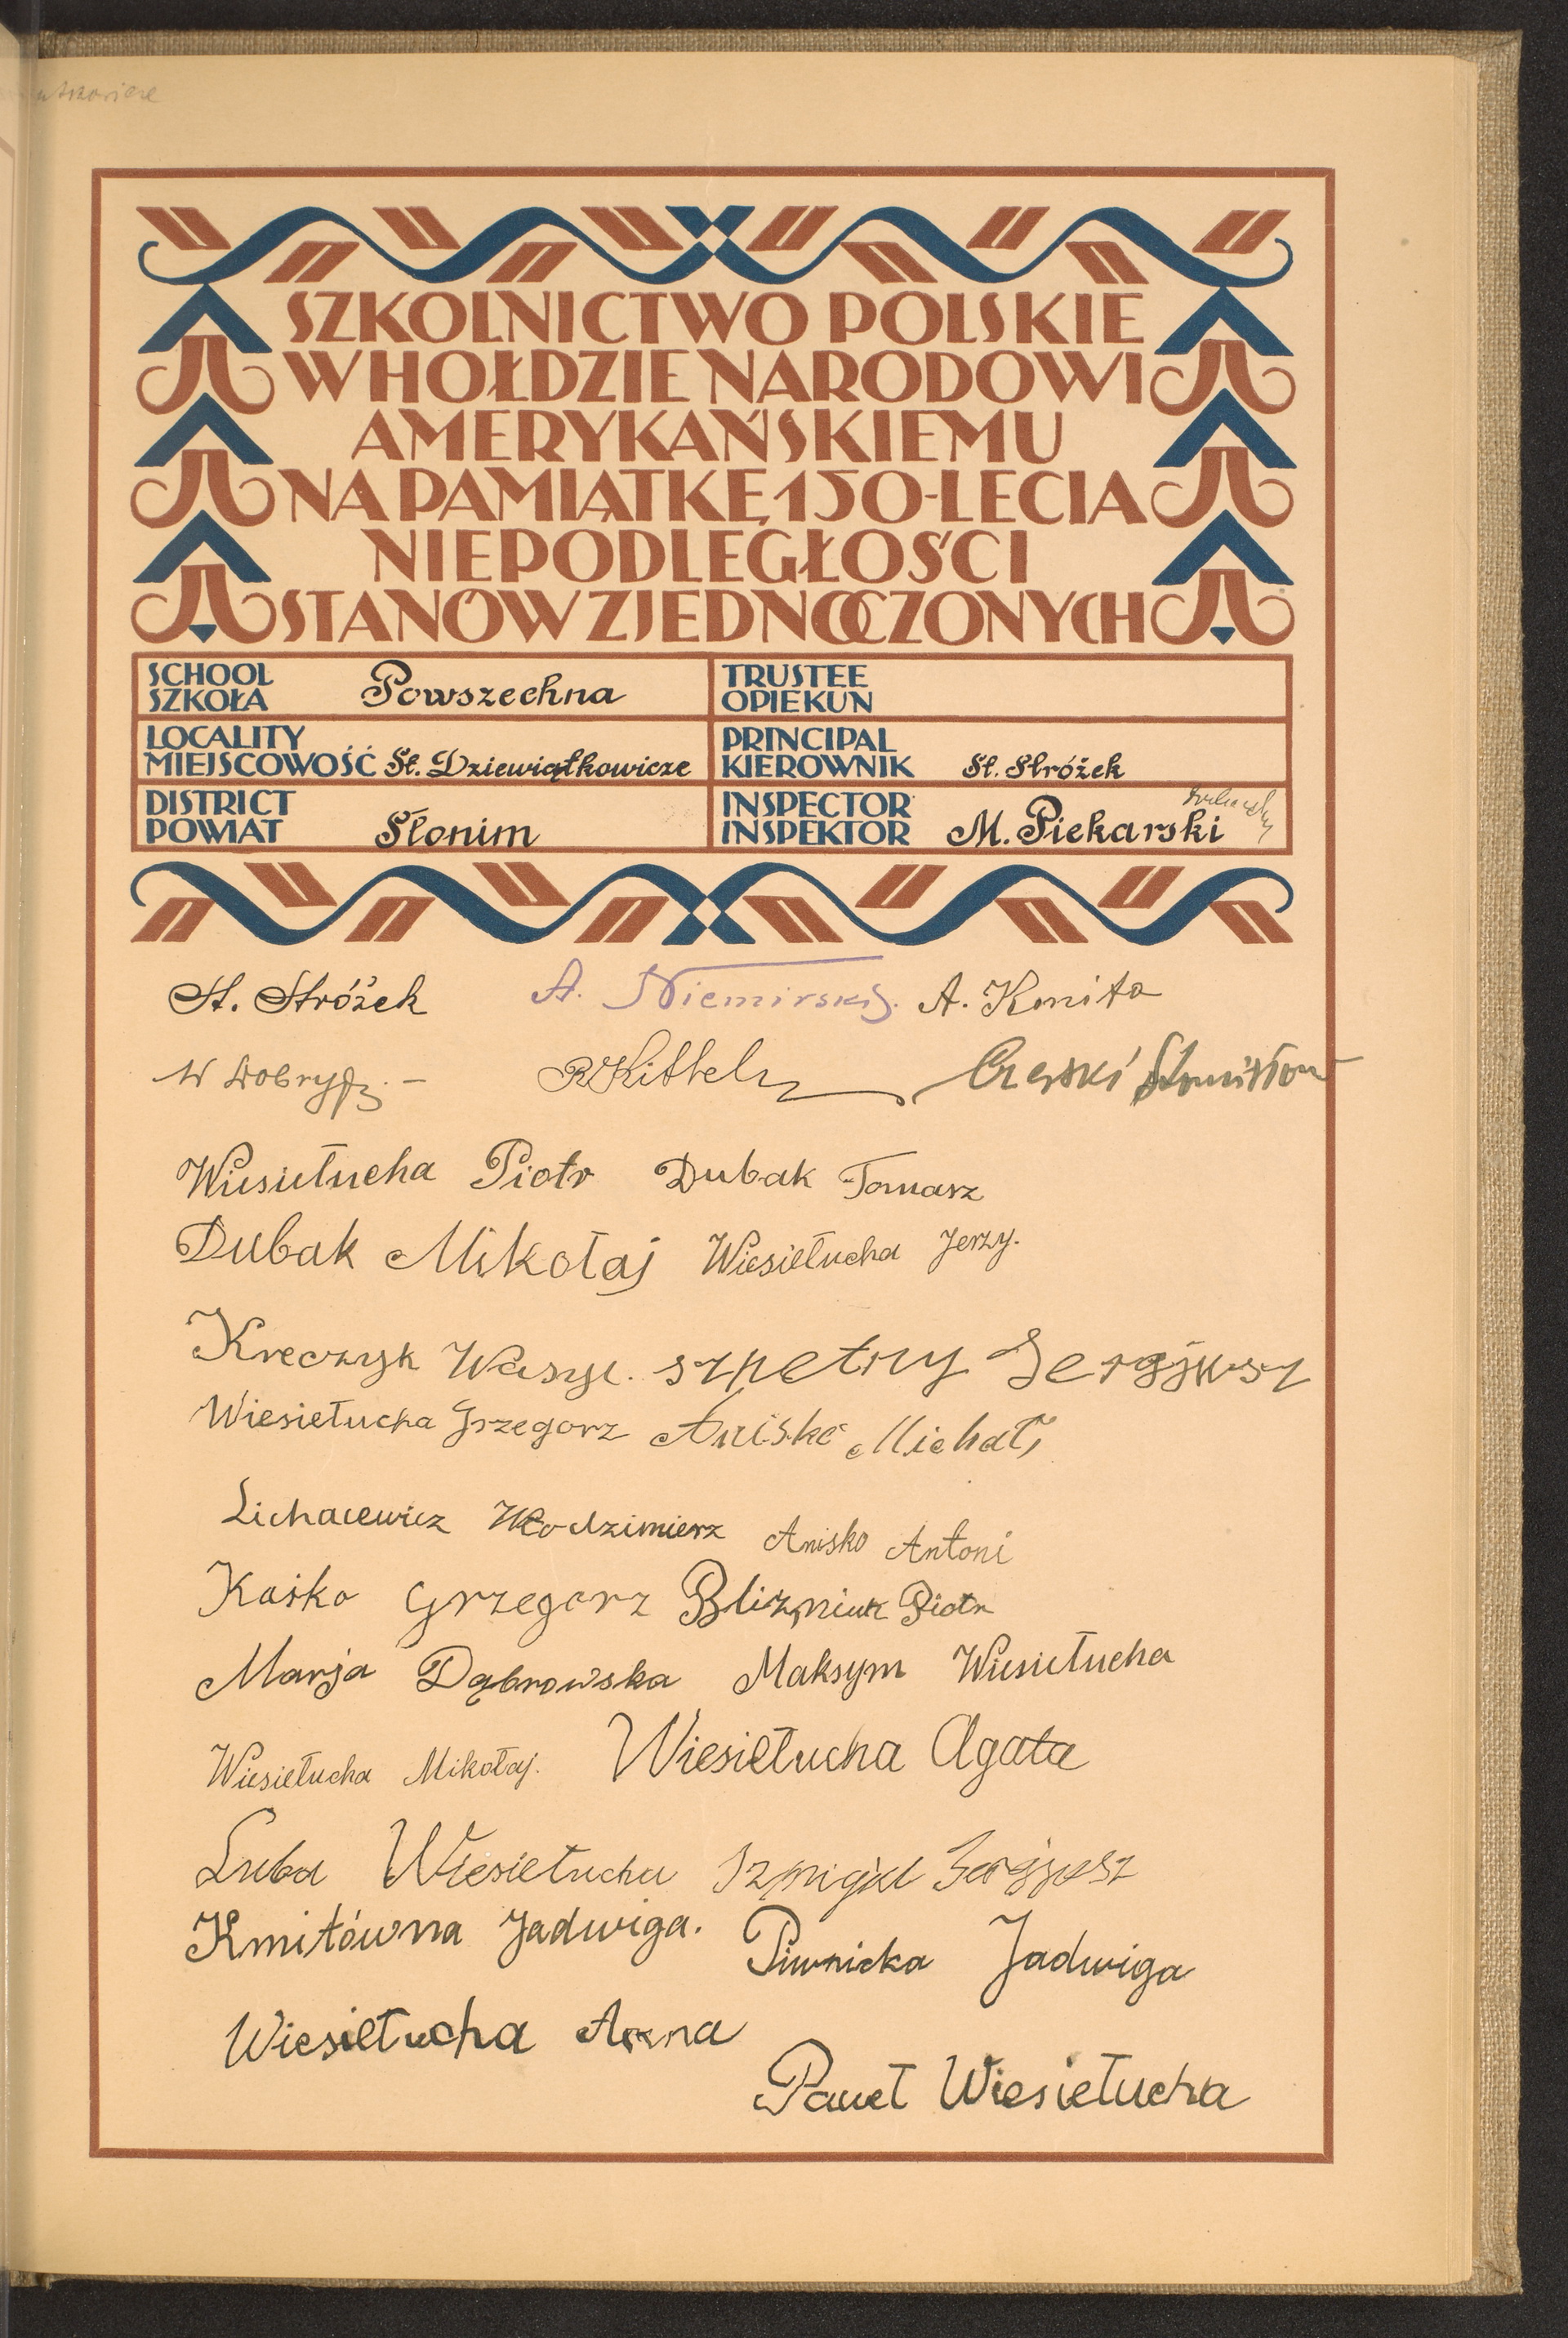 SZKOLNICTWO POLSKIE
W HOŁDZIE NARODOWI
AMERYKAŃSKIEMU
NA PAMIĄTKĘ 150-LECIA
NIEPODLEGŁOŚCI
STANÓW ZJEDNOCZONYCH
SCHOOL
SZKOŁA Powszechna
TRUSTEE
OPIEKUN
LOCALITY
MIEJSCOWOŚĆ St. Dziewiątkowicze
PRINCIPAL
KIEROWNIK St. Stróżek
DISTRICT
POWIAT Słonim
INSPECTOR
INSPEKTOR M. Piekarski
St. Stróżek A. Niemirski. A. Kmita
W RKittel Czerski Stanisław
Wiesiełucha Piotr Dubak Tomasz
Dubak Mikołaj Wiesiełucha Jerzy.
Kreczyk Wasyl. szpetny Sergjusz
Wiesiełucha Grzegorz Anisko Michał
Lichacewicz Włodzimierz Anisko Antoni
Kaśko Grzegorz Bliźniuk Piotr
Marja Dąbrowska Maksym Wiesiełucha
Wiesiełucha Mikołaj. Wiesiełucha Agata
Luba Wiesiełucha Szmigiel Sergjusz
Kmitówna Jadwiga. Piwnicka Jadwiga
Wiesiełucha Anna
Paweł Wiesiełucha